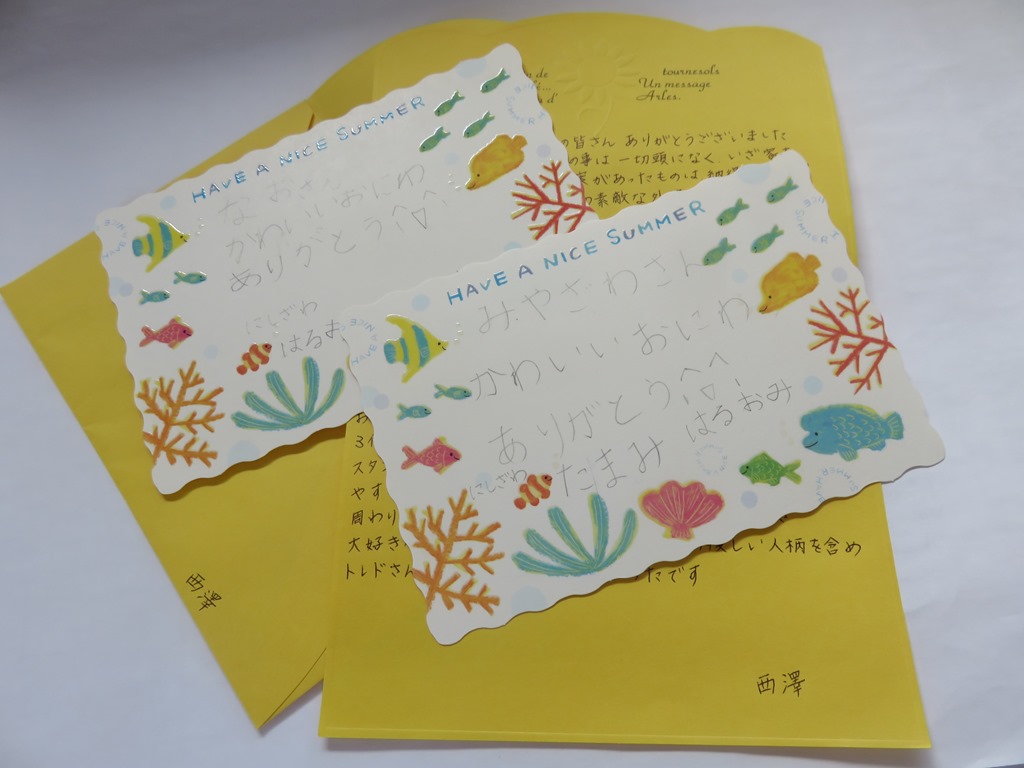 HAVE A NICE SUMMER
なおさん
かわいいおにわ
ありがとう
にしざわ
はるお
HAVE A NICE SUMMER
みやざわさん
かわいい おにわ
ありがとう
はるおみ
にしざわ
たまみ
tournesols
Un message
Arles.
の皆さん ありがとうございました
の事は一切頭になく、いざ家
があったものは
の素敵な
スタン
やす
周わり
大好き
しい人柄を含め
トレドさん
たです
西澤
西澤